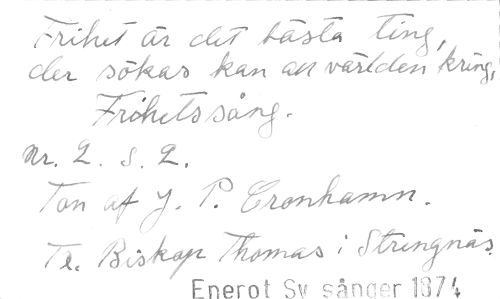 Frihet är det bästa ting,
der sökas kan all världen kring,
Frihetssång.
nr. 2. s. 2.
Ton af J. P. Cronhamn.
Te. Biskop Thomas i Strengnäs.
Enerot Sv sånger 1874